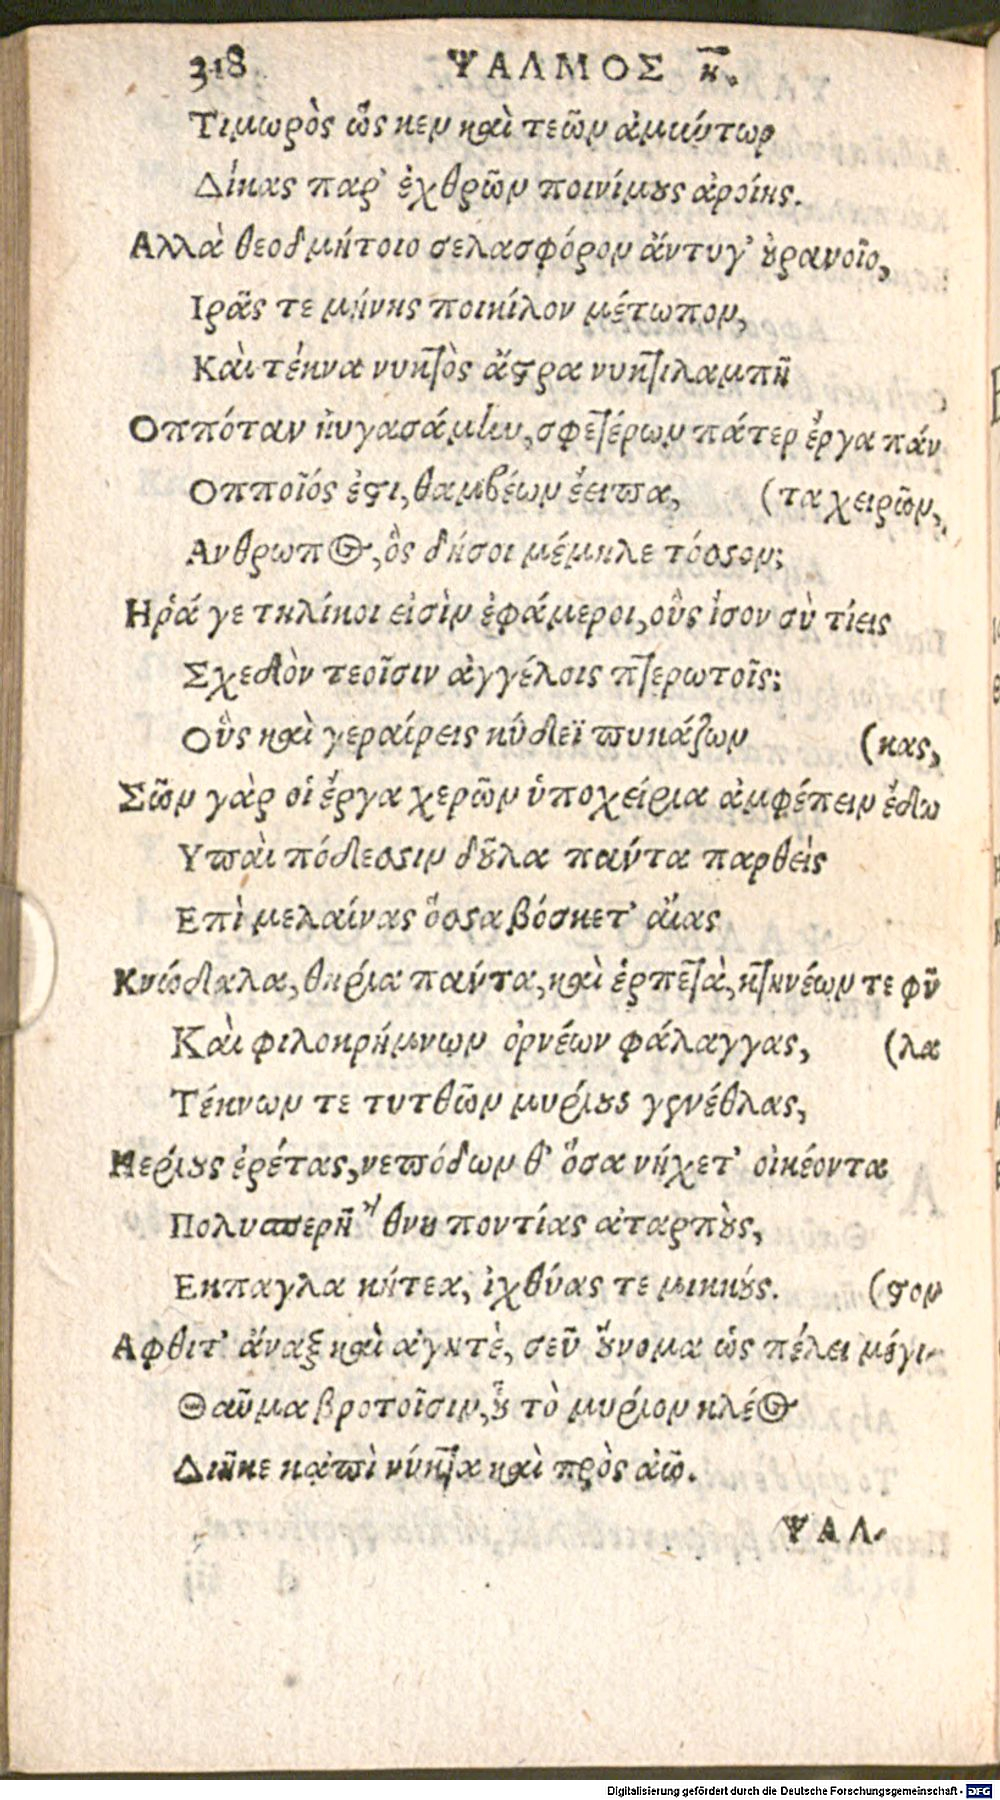 318 ΨΑΛΜΟΣ κ̄.
Τιμωρὸς ὥς κεν καὶ τεῶν ἀμύντωρ
Δίκας παρ' ἐχθρῶν ποινίμους ἀροίης.
Αλλὰ θεοδμήτοιο σελασφόρον ἄντυγ' ουρανοῖο,
Ιρᾶς τε μήνης ποικίλον μέτωπον,
Καὶ τέκνα νυκτὸς ἄστρα νυκτιλαμπῆ
Οππόταν ηυγασάμην, σφετέρων πάτερ ἔργα πάν
Οπποῖός ἐστι, θαμβέων ἔειπα, (τα χειρῶν,
Ανθρωπος, ὃς δή σοι μέμηλε τόσσον;
Ηῥά γε τηλίκοι εἰσὶν ἐφάμεροι, οὓς ἶσον σὺ τίεις
Σχεδὸν τεοῖσιν ἀγγέλοις πτερωτοῖς;
Οὓς καὶ γεραίρεις κύδεϊ πυκάζων (κας,
Σῶν γὰρ οἱ ἔργα χερῶν ὑποχείρια ἀμφέπειν ἔδω
Υπαὶ πόδεσσιν δοῦλα πάντα παρθεὶς
Επὶ μελαίνας ὅσσα βόσκετ' αἴας
Κνώδαλα, θηρία πάντα, καὶ ἑρπετὰ, κτηνέων τε φῦ
Καὶ φιλοκρήμνων ὀρνέων φάλαγγας, (λα
Τέκνων τε τυτθῶν μυρίους γενέθλας,
Ηερίους ἐρέτας, νεπόδων θ' ὅσα νήχετ' οἰκέοντα
Πολυσπερῆ θνου ποντίας αταρποὺς,
Εκπαγλα κήτεα, ἰχθύας τε μικκούς. (στον
Αφθιτ' ἄναξ καὶ ἁγητὲ, σεῦ οὔνομα ὡς πέλει μέγι-
Θαῦμα βροτοῖσιν, οὗ τὸ μυρίον κλέος
Διῆκε κἀπὶ νύκτα καὶ πρὸς ἀῶ.
ΨΑΛ-
Digitalisierung gefördert durch die Deutsche Forschungsgemeinschaft - DFG